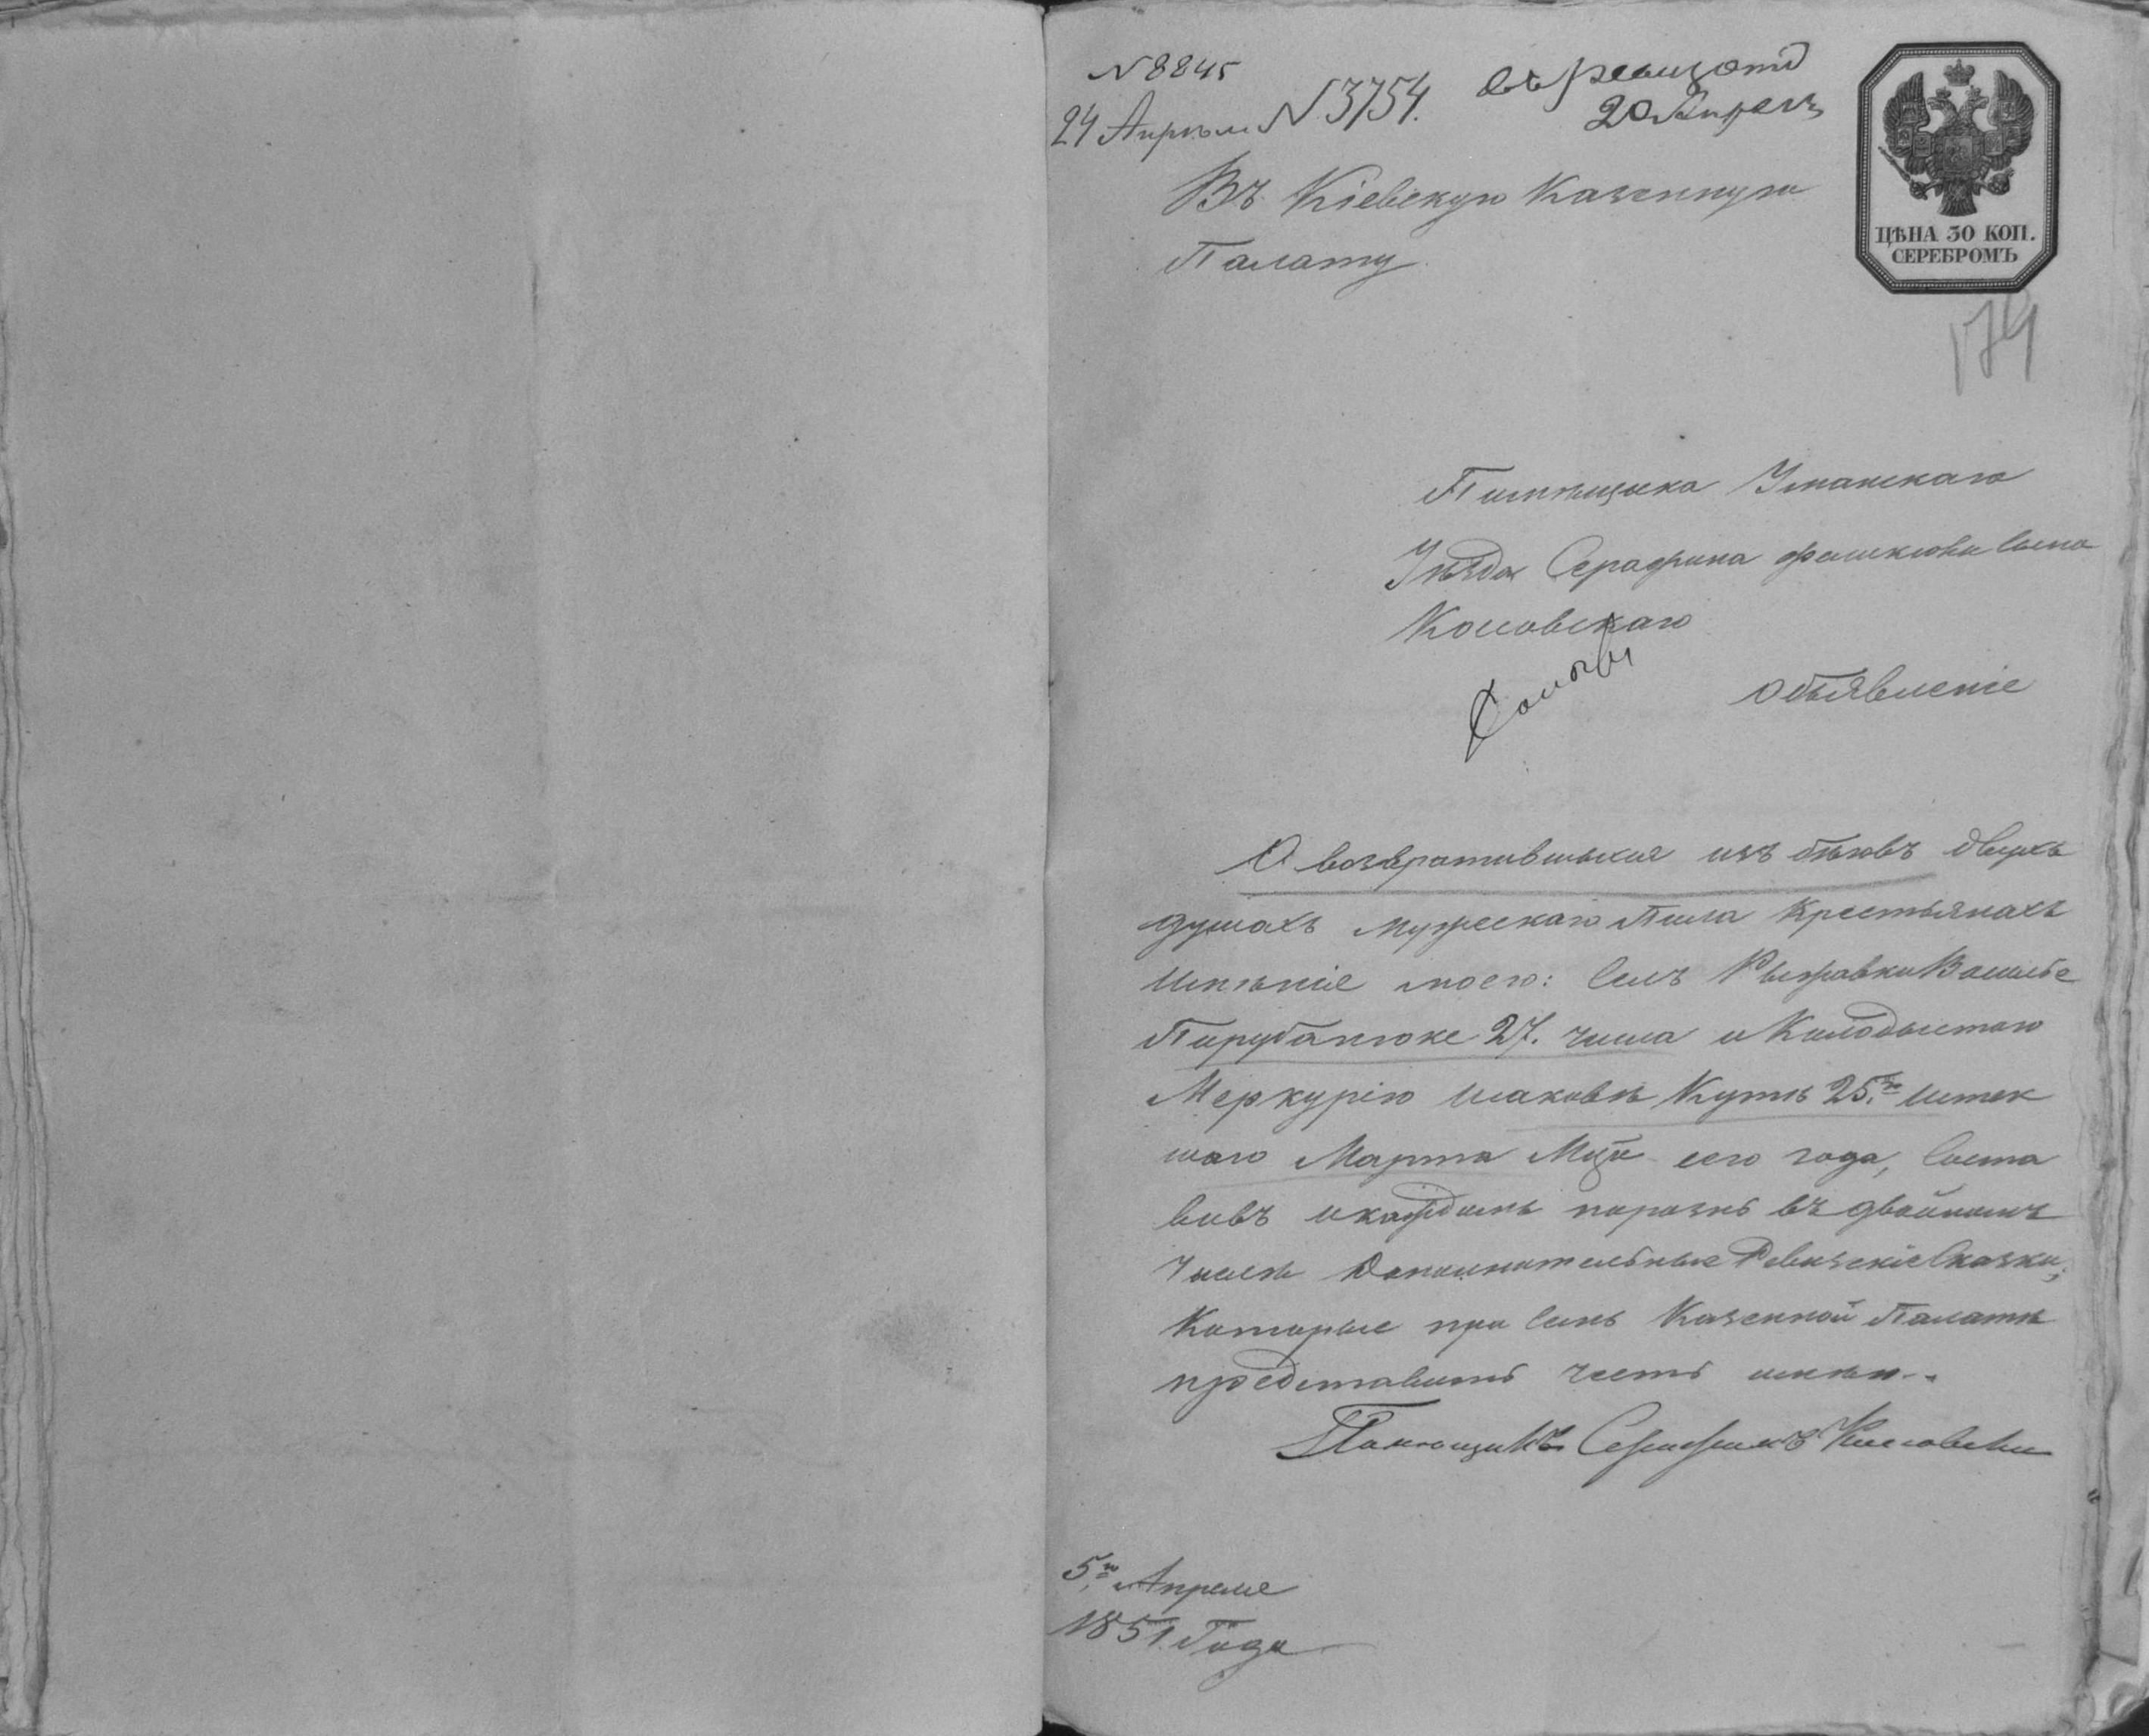 N 8845
24 Апрѣля N 3754.
20 Апреля
Въ Кіевскую Казенную
Палату
ЦѢНА 30 КОП.
СЕРЕБРОМЪ
179
Помѣщика Уманскаго
Уѣзда Серафина сына
Косовскаго
Объявленіе
О возвратившихся изъ бѣговъ двухъ
душахъ мужескаго Пола Крестьянахъ
имѣніе моего: Селъ Рыжавки
27. числа и Колодыстаго
Меркурію Кутѣ 25.го истек
шаго Марта Мца сего года, Соста
вивъ и каждомъ порознь въ двойномъ
Числѣ Дополнительные Ревизскіе Сказки,
Которые при Семъ Казенной Палатѣ
представить честь имѣю.
Помѣщикъ Серафинъ Косовски
5го Апреля
1851 Года